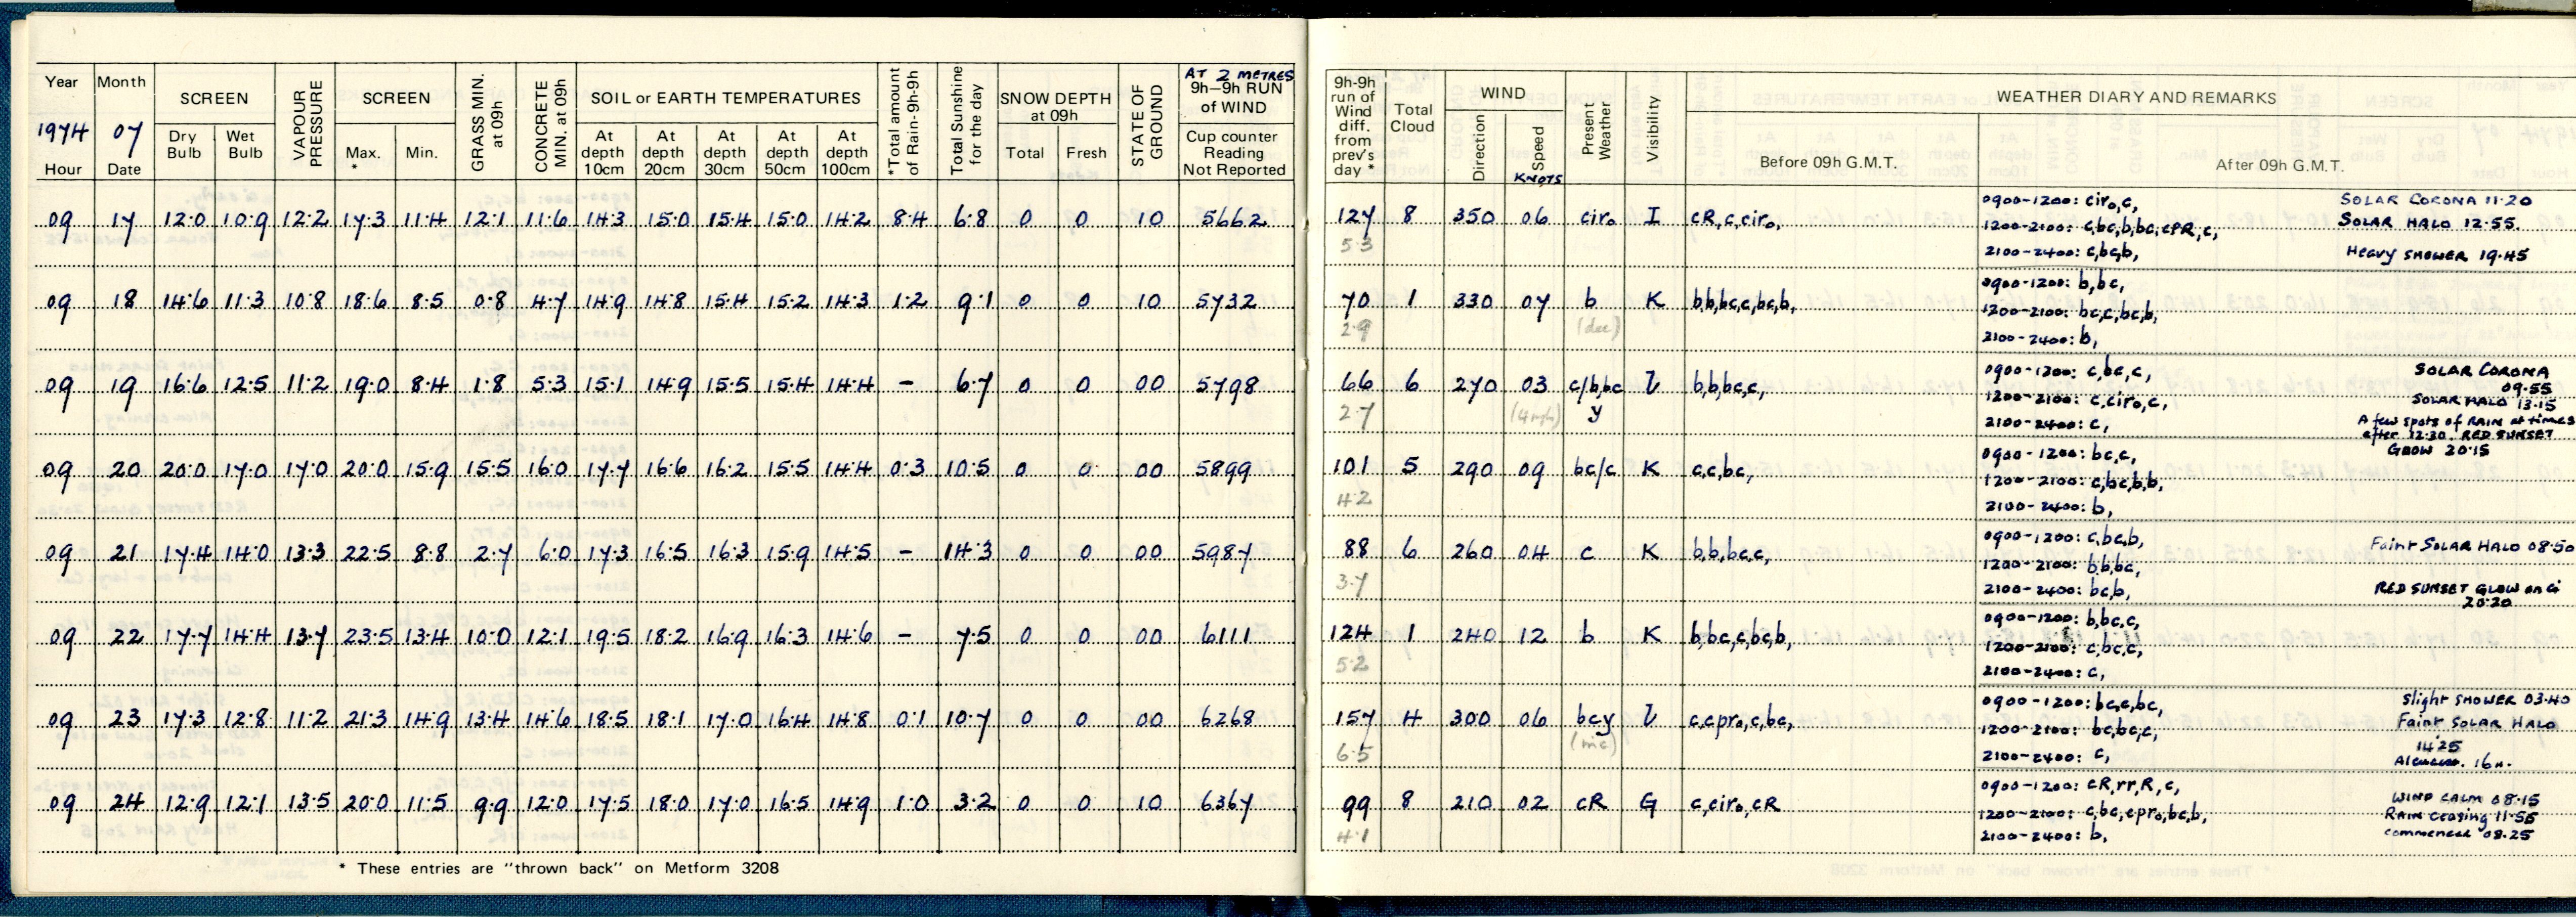 Year Month SCREEN VAPOUR PRESSURE SCREEN GRASS MIN. at 09h CONCRETE MIN. at 09h SOIL or EARTH TEMPERATURES *Total amount of Rain-9h-9h Total Sunshine for the day SNOW DEPTH at 09h STATE OF GROUND AT 2 METRES 9h–9h RUN of WIND
1974 07 Dry Bulb Wet Bulb Max. * Min. At depth 10cm At depth 20cm At depth 30cm At depth 50cm At depth 100cm Total Fresh Cup counter Reading Not Reported
Hour Date
09 17 12.0 10.9 12.2 17.3 11.4 12.1 11.6 14.3 15.0 15.4 15.0 14.2 8.4 6.8 0 0 10 5662
09 18 14.6 11.3 10.8 18.6 8.5 0.8 4.7 14.9 14.8 15.4 15.2 14.3 1.2 9.1 0 0 10 5732
09 19 16.6 12.5 11.2 19.0 8.4 1.8 5.3 15.1 14.9 15.5 15.4 14.4 – 6.7 0 0 00 5798
09 20 20.0 17.0 17.0 20.0 15.9 15.5 16.0 17.7 16.6 16.2 15.5 14.4 0.3 10.5 0 0 00 5899
09 21 17.4 14.0 13.3 22.5 8.8 2.7 6.0 17.3 16.5 16.3 15.9 14.5 – 14.3 0 0 00 5987
09 22 17.7 14.4 13.7 23.5 13.4 10.0 12.1 19.5 18.2 16.9 16.3 14.6 – 7.5 0 0 00 6111
09 23 17.3 12.8 11.2 21.3 14.9 13.4 14.6 18.5 18.1 17.0 16.4 14.8 0.1 10.7 0 0 00 6268
09 24 12.9 12.1 13.5 20.0 11.5 9.9 12.0 17.5 18.0 17.0 16.5 14.9 1.0 3.2 0 0 10 6367
* These entries are "thrown back" on Metform 3208
9h-9h run of Wind diff. from prev's day * Total Cloud WIND Direction Speed KNOTS Present Weather Visibility WEATHER DIARY AND REMARKS
Before 09h G.M.T. After 09h G.M.T.
127 8 350 06 ciro I cR,c,ciro, 0900-1200: ciro,c, SOLAR CORONA 11.20
5.3 1200-2100: c,bc,b,bc,cpR,c, SOLAR HALO 12.55.
2100-2400: c,bc,b, Heavy SHOWER 19.45
70 1 330 07 b K b,b,bc,c,bc,b, 0900-1200: b,bc,
2.9 (dec) 1200-2100: bc,c,bc,b,
2100-2400: b,
66 6 270 03 c/b,bc y b,b,bc,c, 0900-1200: c,bc,c, SOLAR CORONA 09.55
2.7 (4mph) 1200-2100: c,ciro,c, SOLAR HALO 13.15
2100-2400: c, A few spots of RAIN at times after 12.30. RED SUNSET GLOW 20.15
101 5 290 09 bc/c K c,c,bc, 0900-1200: bc,c,
4.2 1200-2100: c,bc,b,b,
2100-2400: b,
88 6 260 04 c K b,b,bc,c, 0900-1200: c,bc,b, Faint SOLAR HALO 08.50
3.7 1200-2100: b,b,bc,
2100-2400: bc,b, RED SUNSET GLOW on Ci 20.20
124 1 240 12 b K b,bc,c,bc,b, 0900-1200: b,bc,c,
5.2 1200-2100: c,bc,c,
2100-2400: c,
157 4 300 06 bcy c,cpro,c,bc, 0900-1200: bc,c,bc, Slight SHOWER 03.40
6.5 1200-2100: bc,bc,c, Faint SOLAR HALO 14.25
2100-2400: c,
99 8 210 02 cR G c,ciro,cR 0900-1200: cR,rr,R,c, WIND CALM 08.15
4.1 1200-2100: c,bc,cpro,bc,b, RAIN Ceasing 11.55
2100-2400: b, commenced 08.25